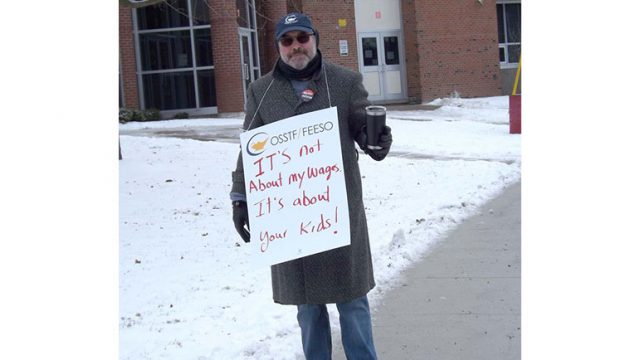 OSSTF/FEESO
IT's not
About my wages.
It's about
Your Kids!